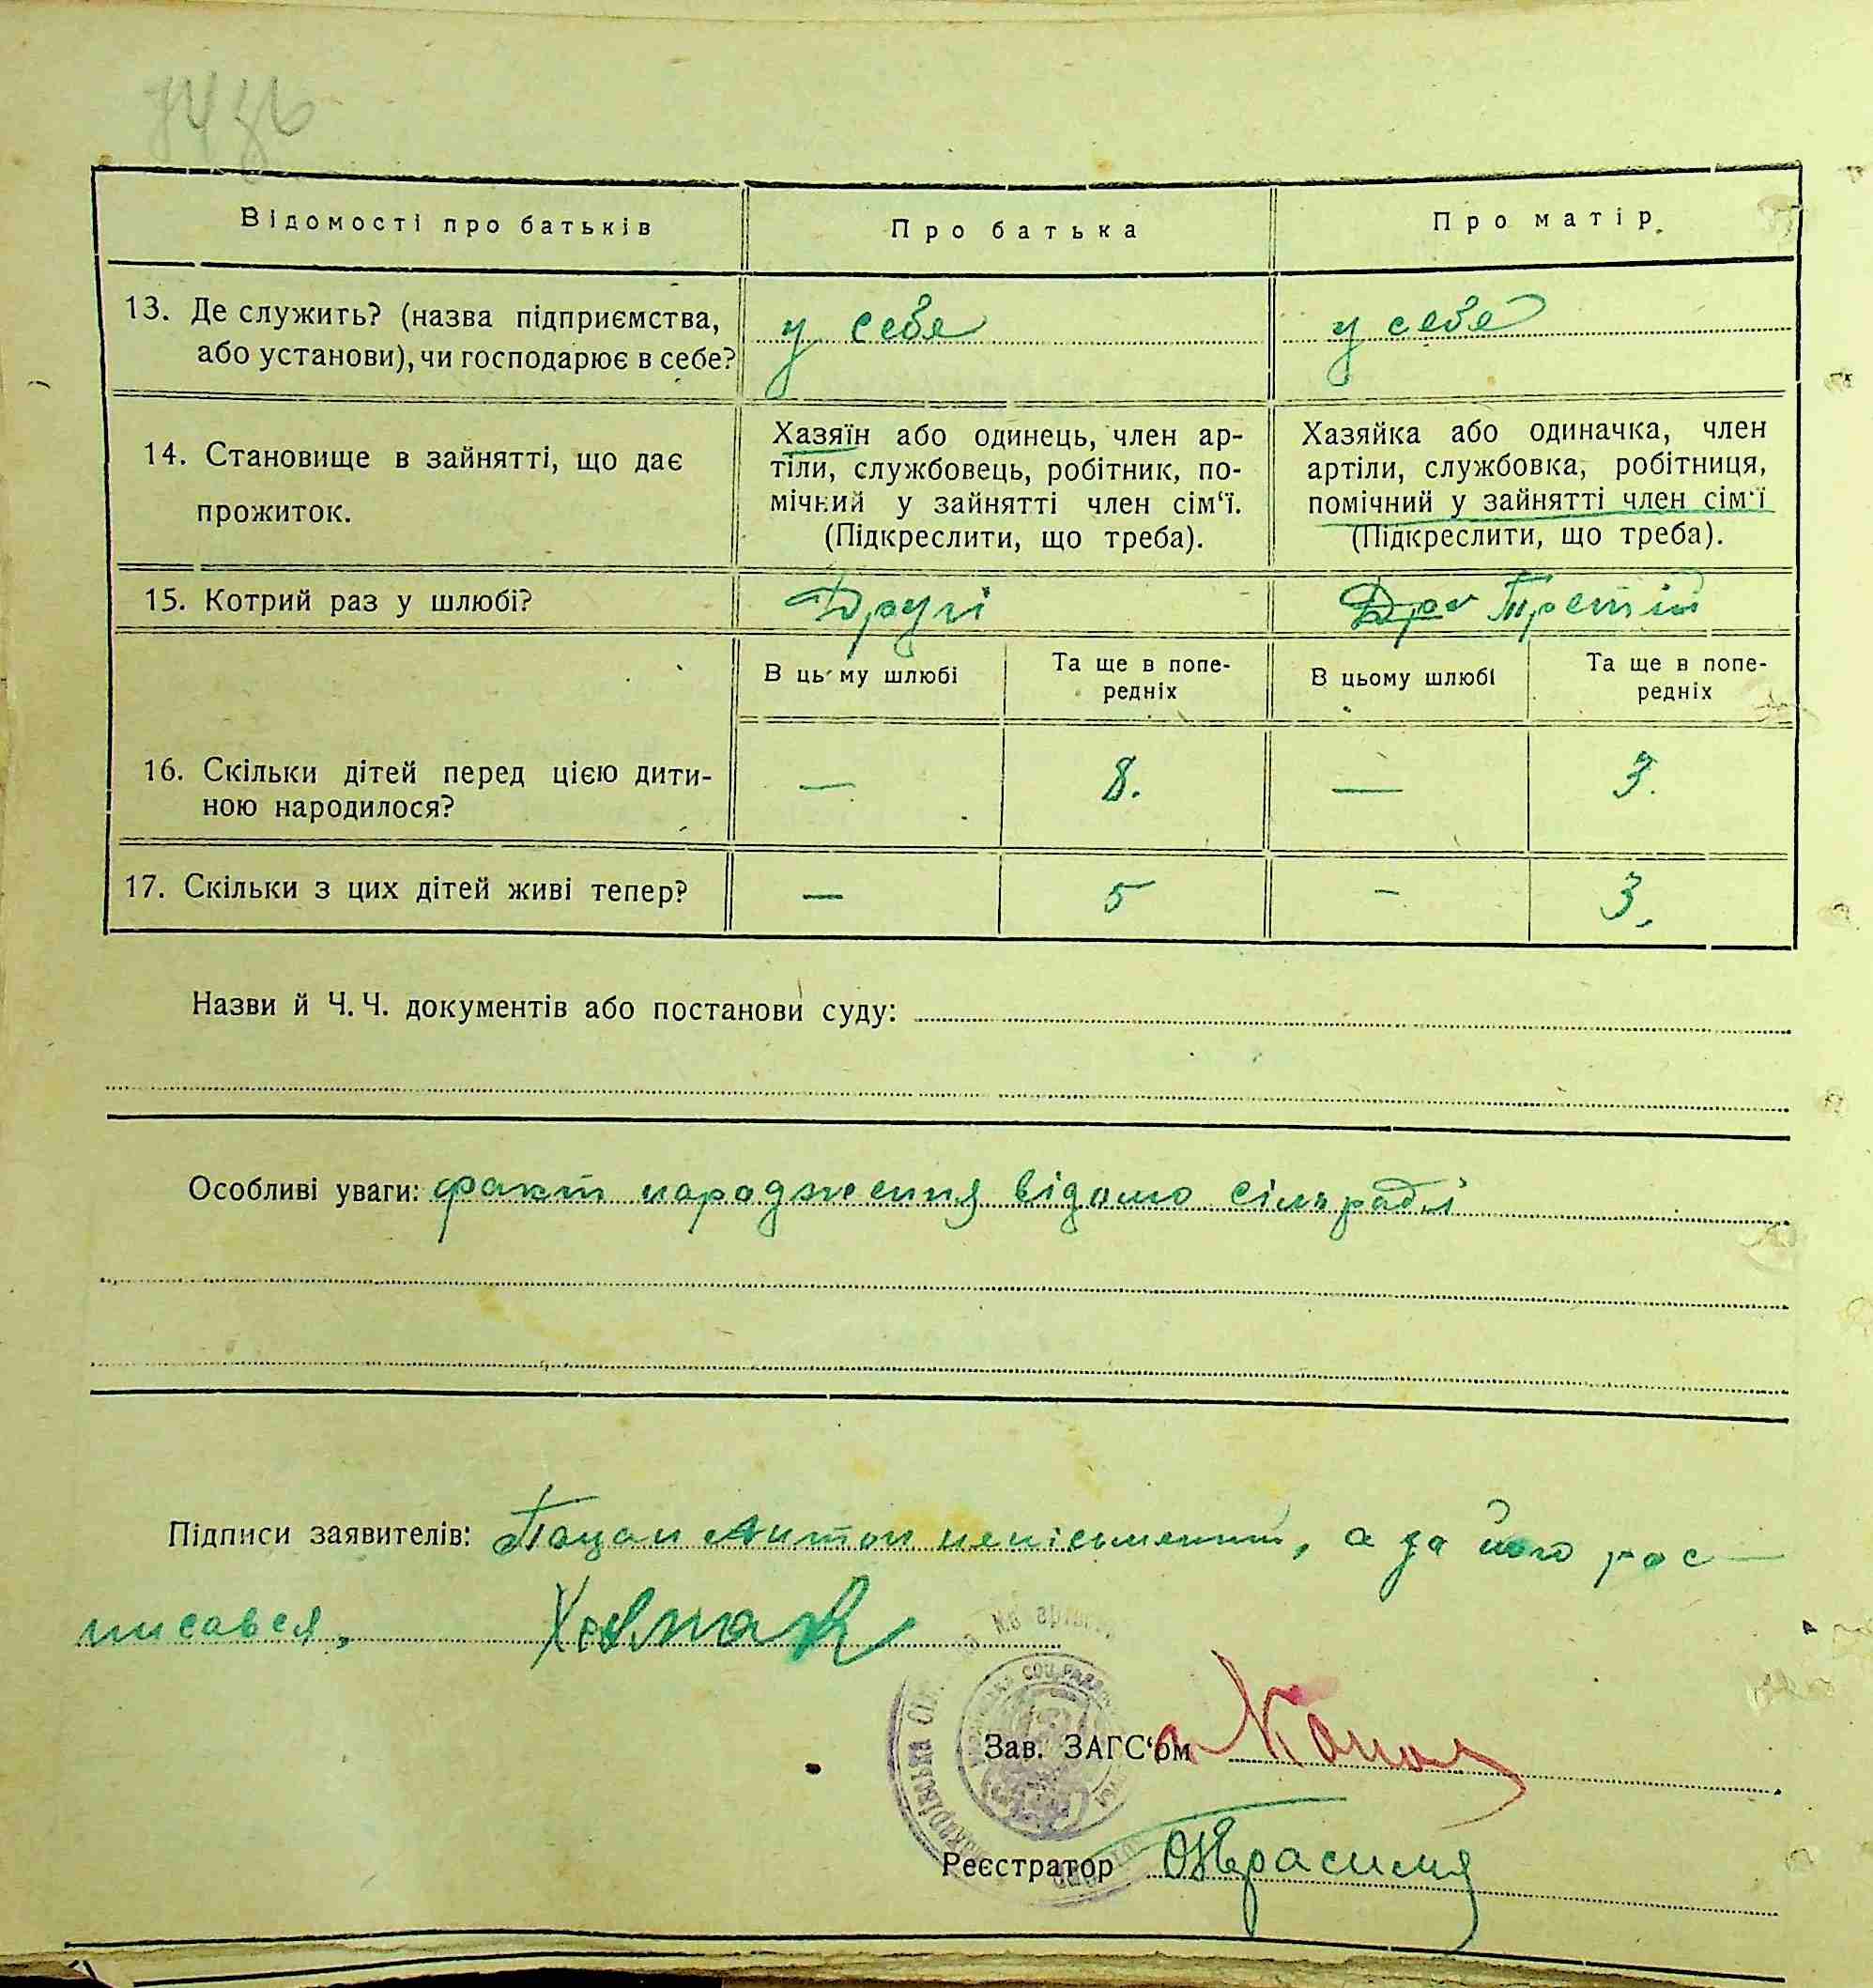 Відомості про батьків
Про батька
Про матір.
13. Де служить? (назва підприємства, або установи), чи господарює в себе?
у себе
у себе
14. Становище в зайнятті, що дає прожиток.
Хазяїн або одинець, член ар-
тіли, службовець, робітник, по-
мічний у зайнятті член сім‘ї.
(Підкреслити, що треба).
Хазяйка або одиначка, член
артіли, службовка, робітниця,
помічний у зайнятті член сім‘ї
(Підкреслити, що треба).
15. Котрий раз у шлюбі?
Другі
Дру Третій
В цьму шлюбі
Та ще в попе-
редніх
В цьому шлюбі
Та ще в попе-
редніх
16. Скільки дітей перед цією дити-
ною народилося?
—
8.
—
3.
17. Скільки з цих дітей живі тепер?
—
5
-
3.
Назви й Ч. Ч. документів або постанови суду:
Особливі уваги: факт народження відомо сільраді
Підписи заявителів: Поцан Антон неписьменний, а за його рос-
писався,
Зав. ЗАГС‘ом
Реєстратор